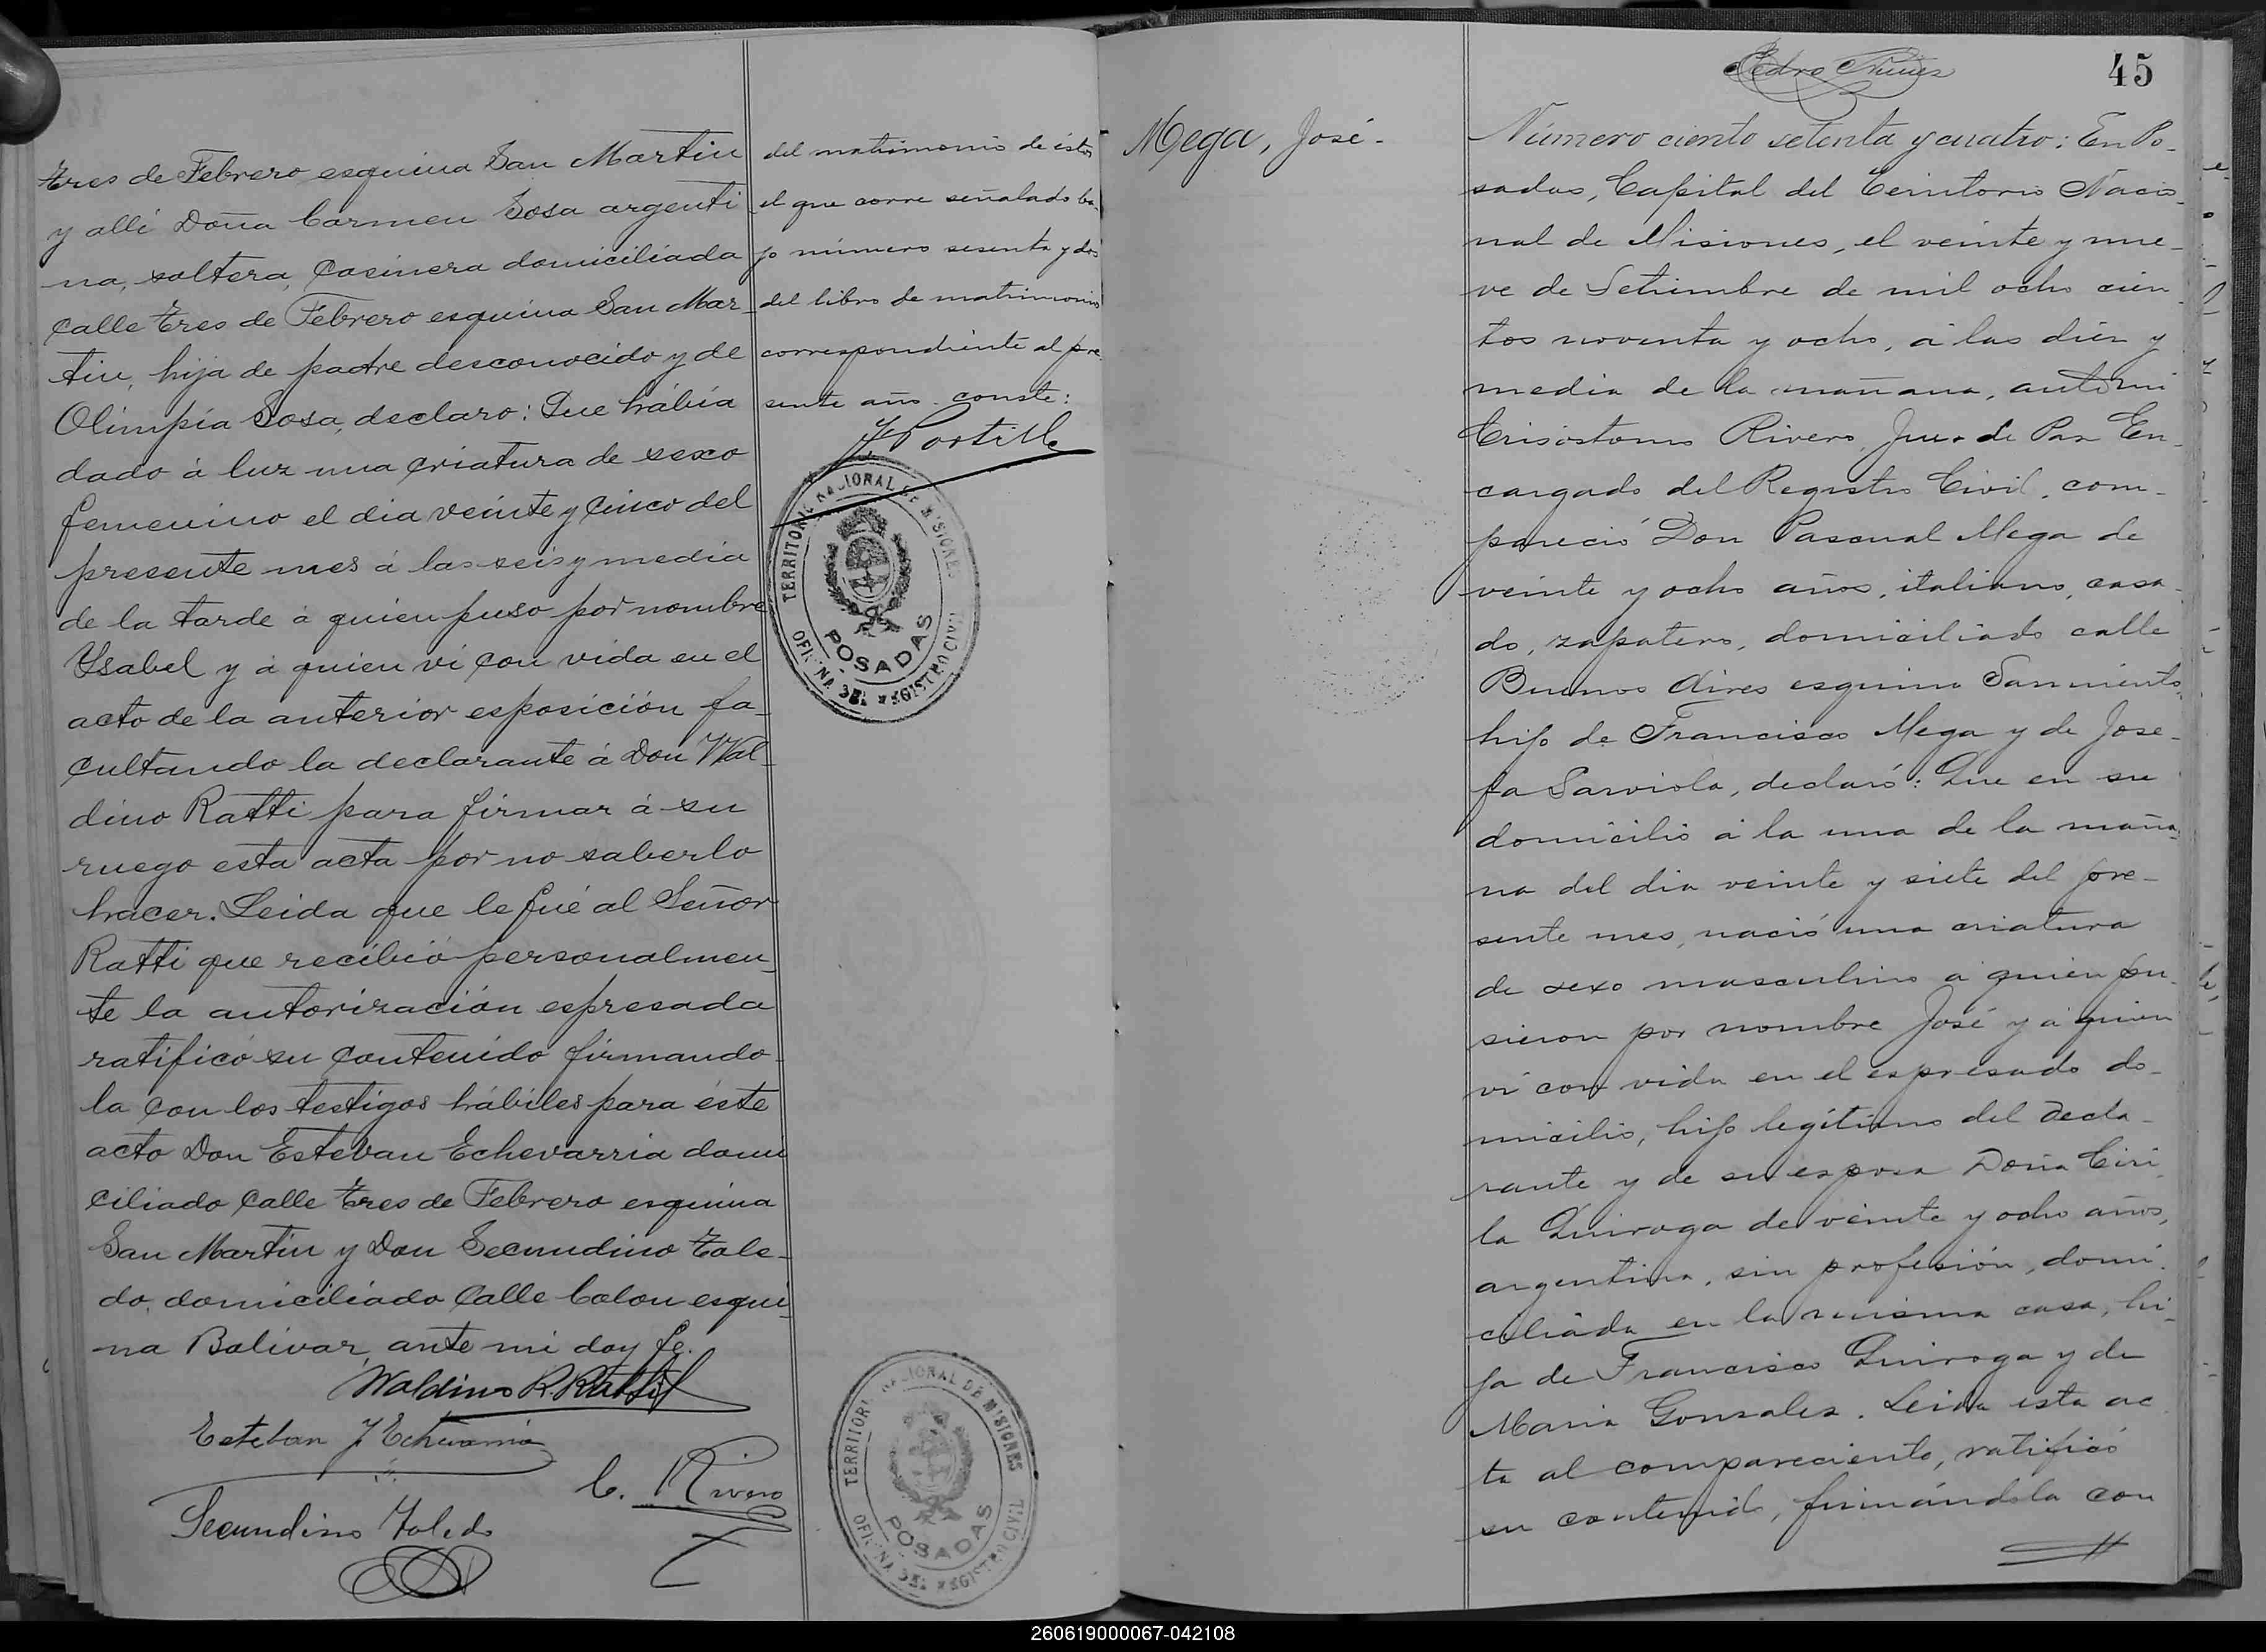 tres de Febrero esquina San Martin
y alli Doña Carmen Sosa argenti
na, soltera, cosinera domiciliada
calle tres de Febrero esquina San Mar-
tin, hija de padre desconocido y de
Olimpia Sosa, declaro: Que había
dado á luz una criatura de sexo
femenino el dia veinte y cinco del
presente mes á las seis y media
de la tarde á quien puso por nombre
Ysabel y á quien ví con vida en el
acto de la anterior esposición fa-
cultando la declarante á Don Wal-
dino Ratti para firmar á su
ruego esta acta por no saberlo
hacer. Leida que le fué al Señor
Ratti que recibió personalmen-
te la autorización espresada
ratificó su contenido firmando-
la con los testigos hábiles para éste
acto Don Estevan Echevarria domi
ciliado calle tres de Febrero esquina
San Martin y Don Secundino Tole-
do, domiciliado calle Colon esqui
na Bolivar, ante mi doy fe.
Waldino R. Ratti
Esteban J Echevarria
C. Rivero
Secundino Toledo
del matrimonio de éstos
el que corre señalado ba-
jo número sesenta y dos
del libro de matrimonios
correspondiente al pre
sente año. conste:
J Portillo
TERRITORIO NACIONAL DE MISIONES
POSADAS
OFICINA DEL REGISTRO CIVIL
TERRITORIO NACIONAL DE MISIONES
POSADAS
OFICINA DEL REGISTRO CIVIL
Pedro Nuñez
45
Mega, José-
Número ciento setenta y cuatro: En Po-
sadas, Capital del Territorio Nacio-
nal de Misiones, el veinte y nue-
ve de Setiembre de mil ocho cien-
tos noventa y ocho, á las diez y
media de la mañana, ante mi
Crisóstomo Rivero, Juez de Paz En-
cargado del Registro Civil, com-
pareció Don Pascual Mega de
veinte y ocho años, italiano, casa-
do, zapatero, domiciliado calle
Buenos Aires esquina Sarmiento,
hijo de Francisco Mega y de Jose-
fa Sarviola, declaró: Que en su
domicilio á la una de la maña-
na del dia veinte y siete del pre-
sente mes, nació una criatura
de sexo masculino á quien pu-
sieron por nombre José y á quien
ví con vida en el espresado do-
micilio, hijo legítimo del decla-
rante y de su esposa Doña Ciri
la Quiroga de veinte y ocho años,
argentina, sin profesión, domi-
ciliada en la misma casa, hi-
ja de Francisco Quiroga y de
Maria Gonzalez. Leida esta ac
ta al compareciente, ratificó
su contenido, firmándola con